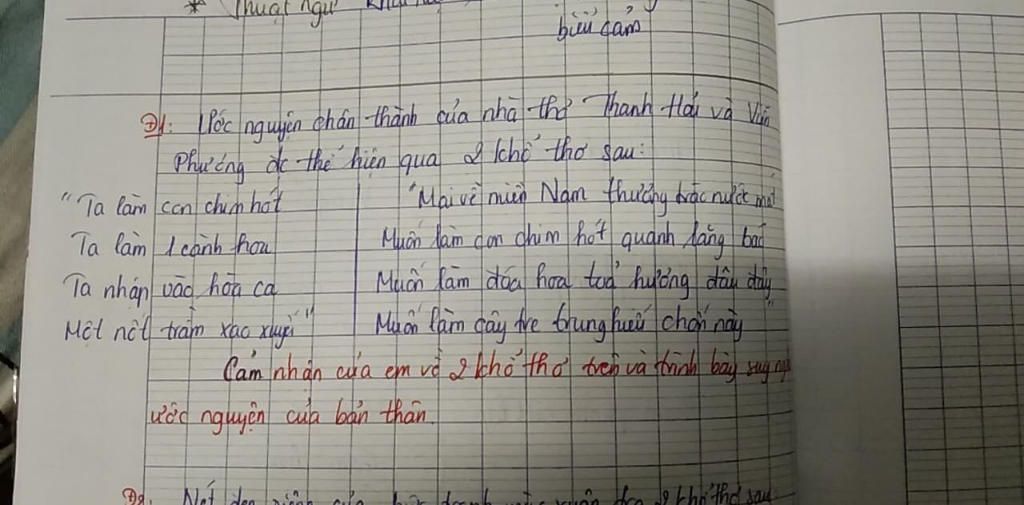 * Thuật ngữ
biểu cảm
Đ1: Ước nguyện chân thành của nhà thơ Thanh Hải và Viễn
Phương đc thể hiện qua 2 khổ thơ sau:
"Ta làm con chim hót
Ta làm 1 cành hoa
Ta nhập vào hòa ca
Một nốt trầm xao xuyến"
"Mai về miền Nam thương trào nước mắt
Muốn làm con chim hót quanh lăng bác
Muốn làm đóa hoa toả hương đâu đây
Muốn làm cây tre trung hiếu chốn này"
Cảm nhận của em về 2 khổ thơ trên và trình bày suy
ước nguyện của bản thân.
Đ2: Nét đẹp riêng của bức tranh mùa xuân 2 khổ thơ sau